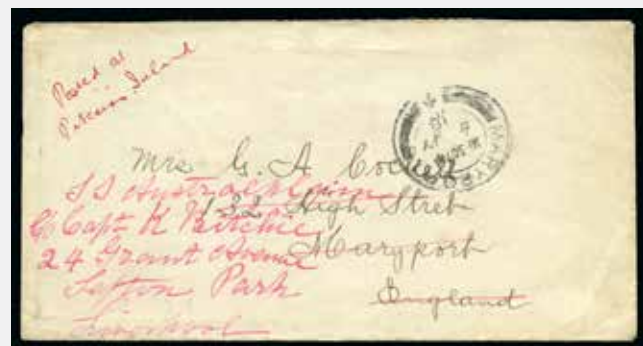 Posted at
Pitcairn Island
MARYPORT
Mrs G. A
132 High Street
Maryport
England
SS
C/o Capt. K Ritchie
24 Grant Avenue
Sefton Park
Liverpool